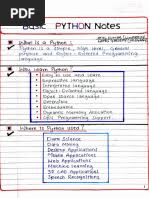 Basic PYTHON Notes
What is a Python ?
Python is a simple, high level, general
purpose and object - oriented programming
language.
Why Learn Python?
Easy to use and Learn
Expressive Language
Interpreted Language
Object - Oriented Language
Open Source Language
Extensible
Learn Standard Library
GUI Programming Support
Integrated
Embeddable
Dynamic Memory Allocation
Where is Python used?
Data Science
Data Mining
Desktop Applications
Mobile Applications
Web Applications
Machine Learning
3D CAD Applications
Speech Recognitions